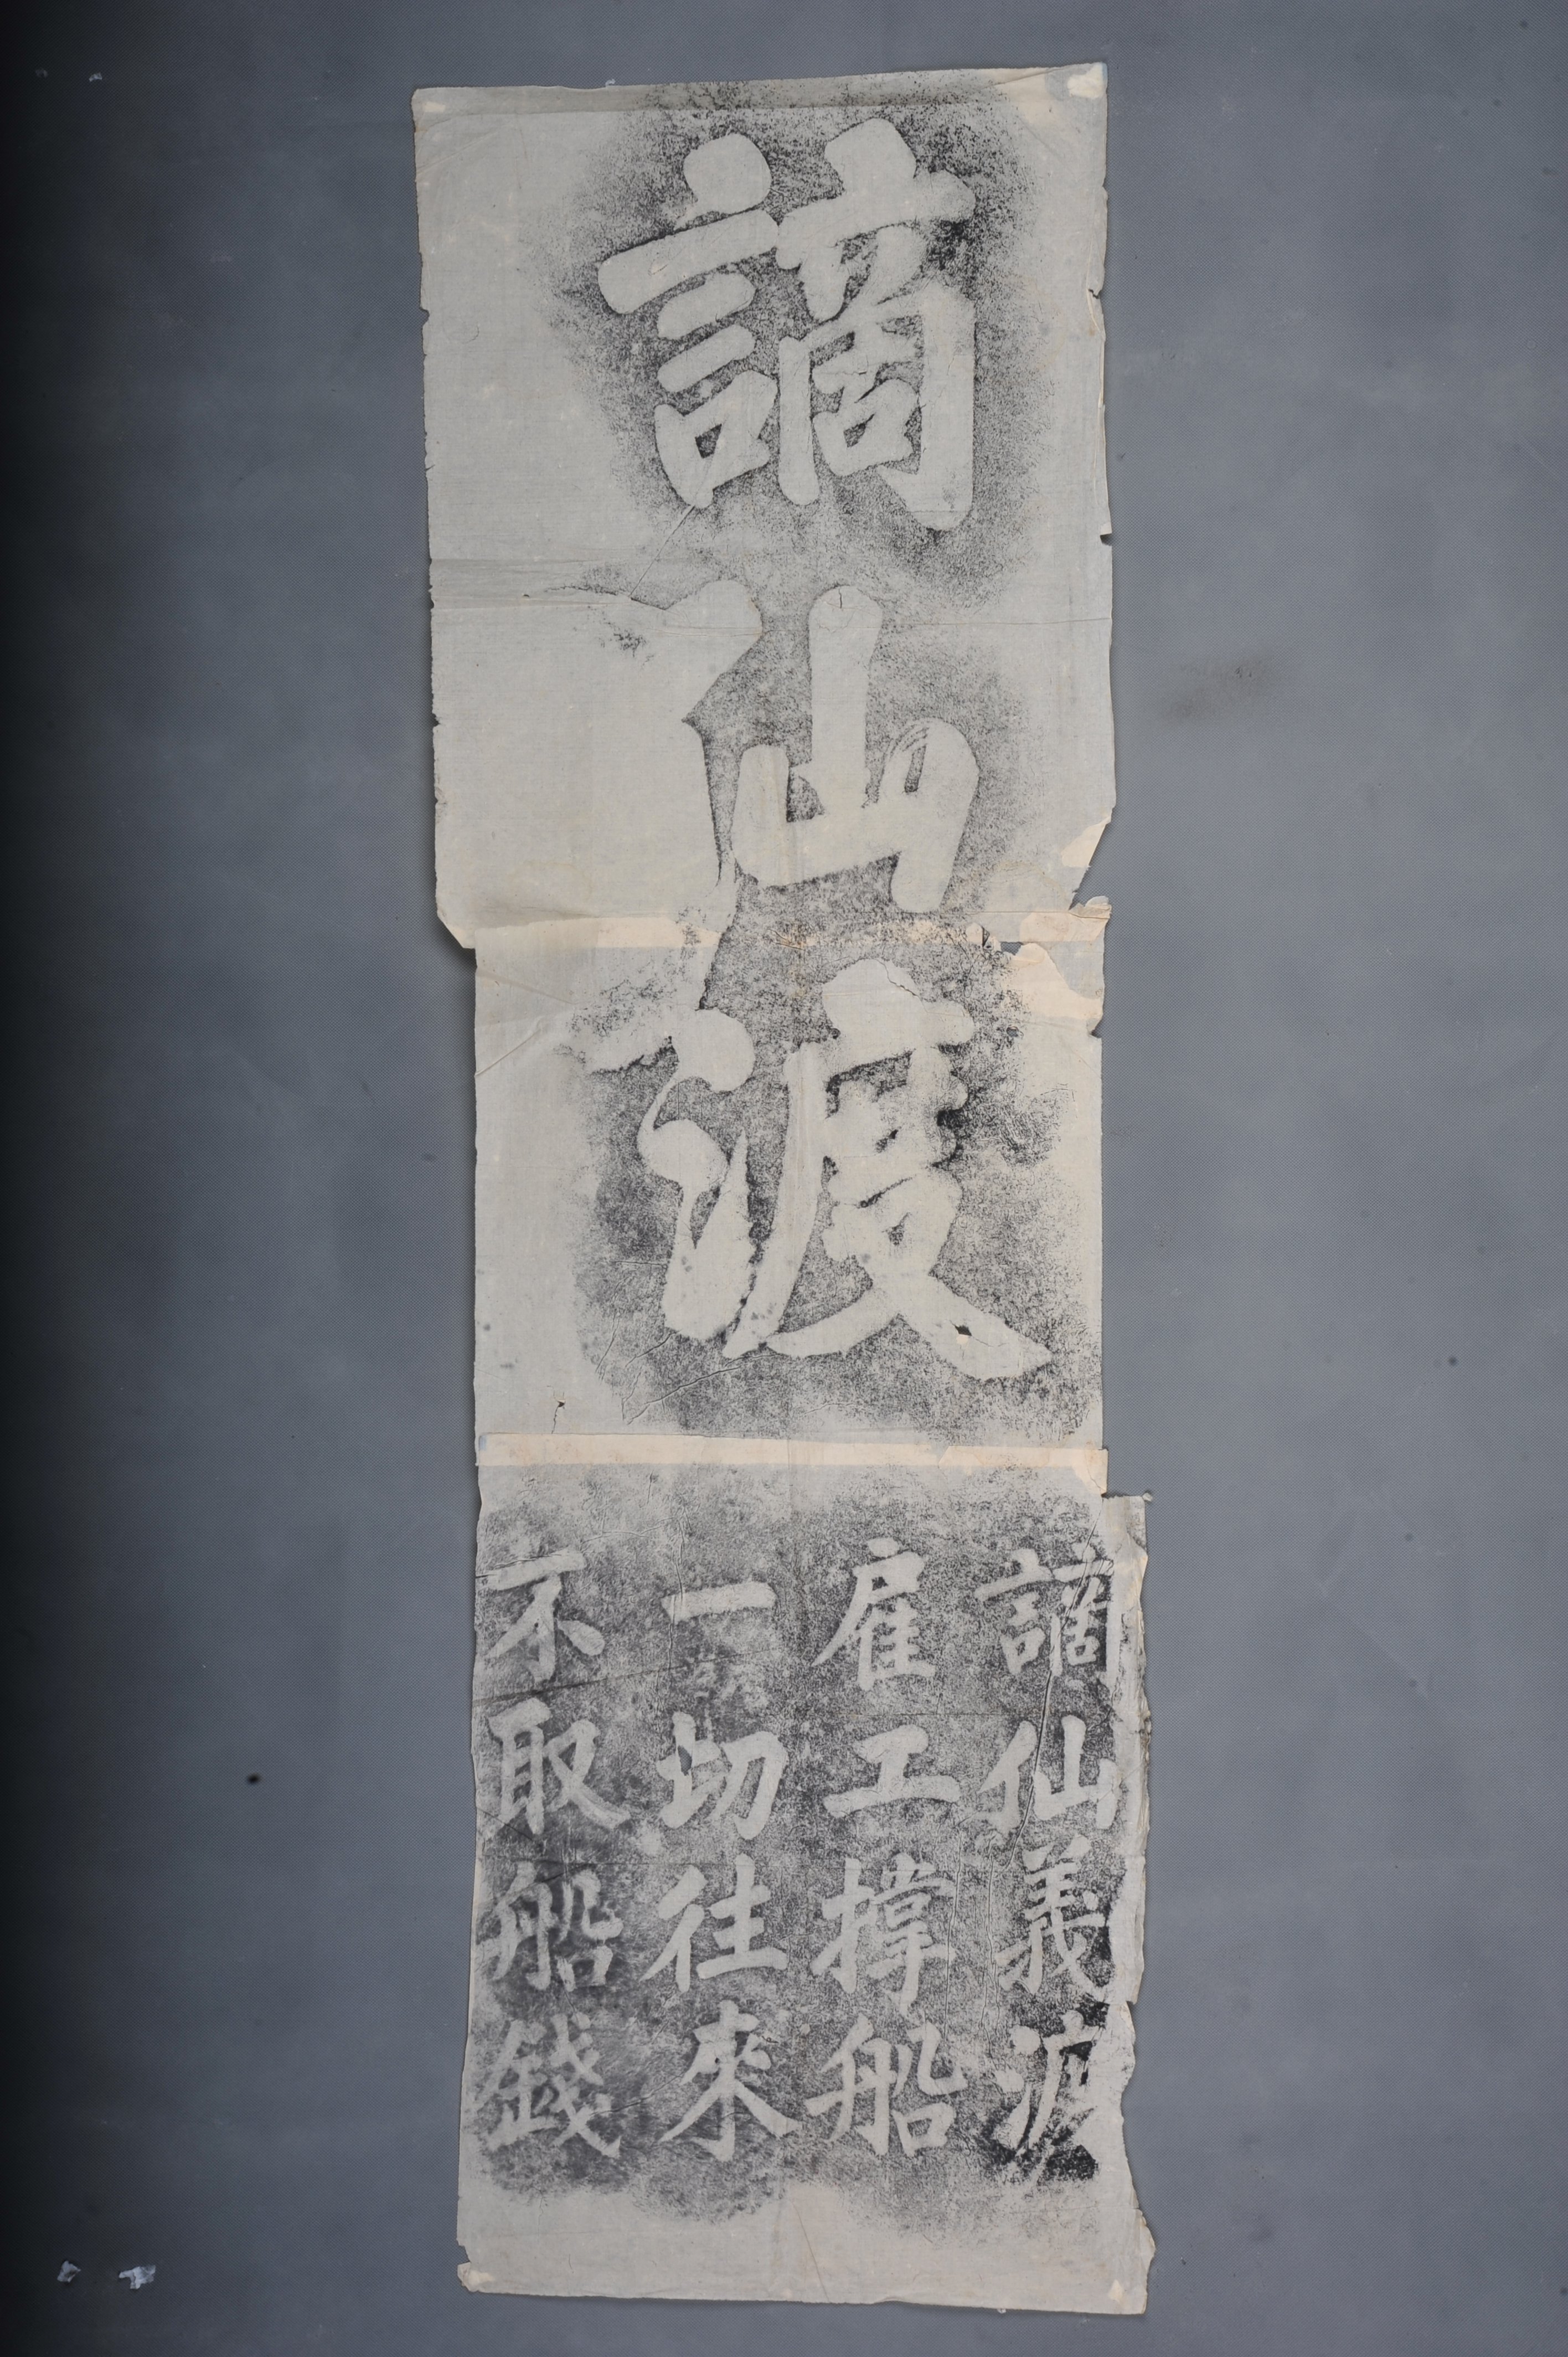 謫仙渡
謫仙義渡
雇工撐船
一切往來
不取船錢